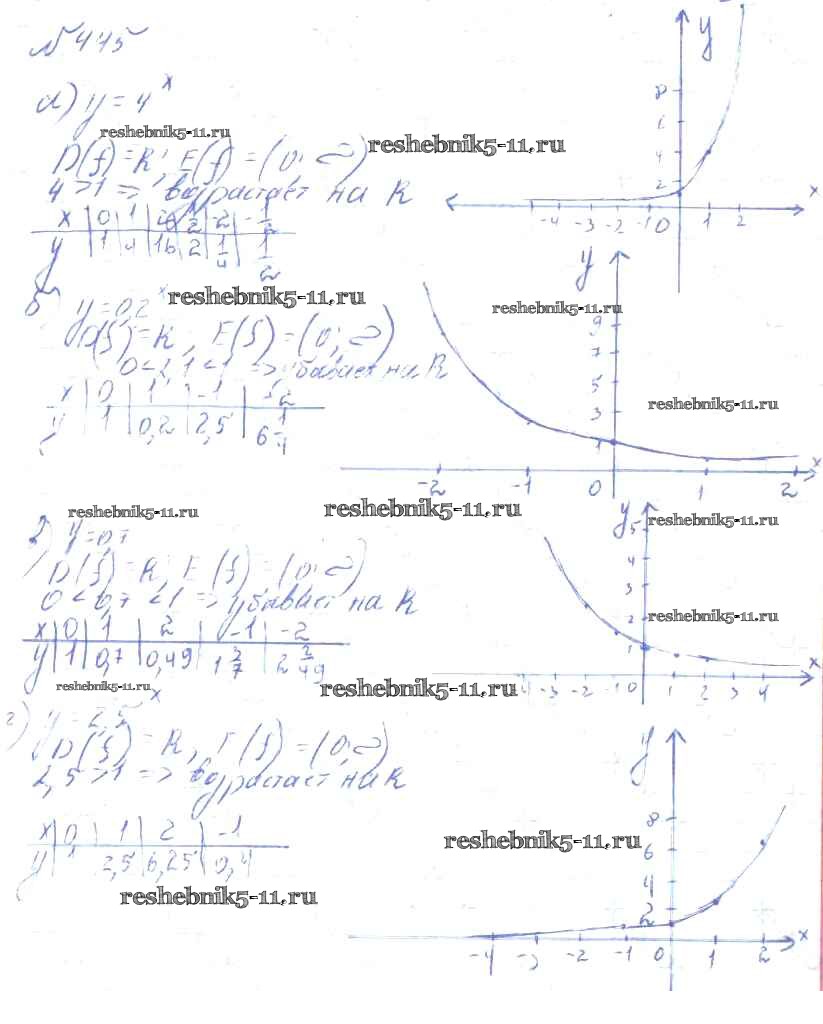 № 445
а) y = 4^x
reshebnik5-11.ru
D(f) = R; E(f) = (0; ∞)
reshebnik5-11.ru
4 > 1 => возрастает на R
x | 0 | 1 | 2 | 1/2 | -2 | -1/2
y | 1 | 4 | 16 | 2 | 1/4 | 1/2
y
8
6
4
2
x
-4 -3 -2 -1 0 1 2
б) y = 0,2^x
reshebnik5-11.ru
D(f) = R, E(f) = (0; ∞)
=> убывает на R
x | 0 | 1 | -1 | -2
y | 1 | 0,2 | 2,5 | 6 1/4
y
reshebnik5-11.ru
9
7
5
3
1
reshebnik5-11.ru
x
-2 -1 0 1 2
reshebnik5-11.ru
reshebnik5-11.ru
y = 0,7
D(f) = R, E(f) = (0; ∞)
0 < 0,7 < 1 => убывает на R
x | 0 | 1 | 2 | -1 | -2
y | 1 | 0,7 | 0,49 | 1 3/7 | 2 2/49
y
reshebnik5-11.ru
5
4
3
2
1
reshebnik5-11.ru
x
-4 -3 -2 -1 0 1 2 3 4
reshebnik5-11.ru
reshebnik5-11.ru
г) y = 2,5^x
D(f) = R, E(f) = (0; ∞)
2,5 > 1 => возрастает на R
x | 0 | 1 | 2 | -1
y | 1 | 2,5 | 6,25 | 0,4
reshebnik5-11.ru
y
8
reshebnik5-11.ru
6
4
2
x
-4 -3 -2 -1 0 1 2